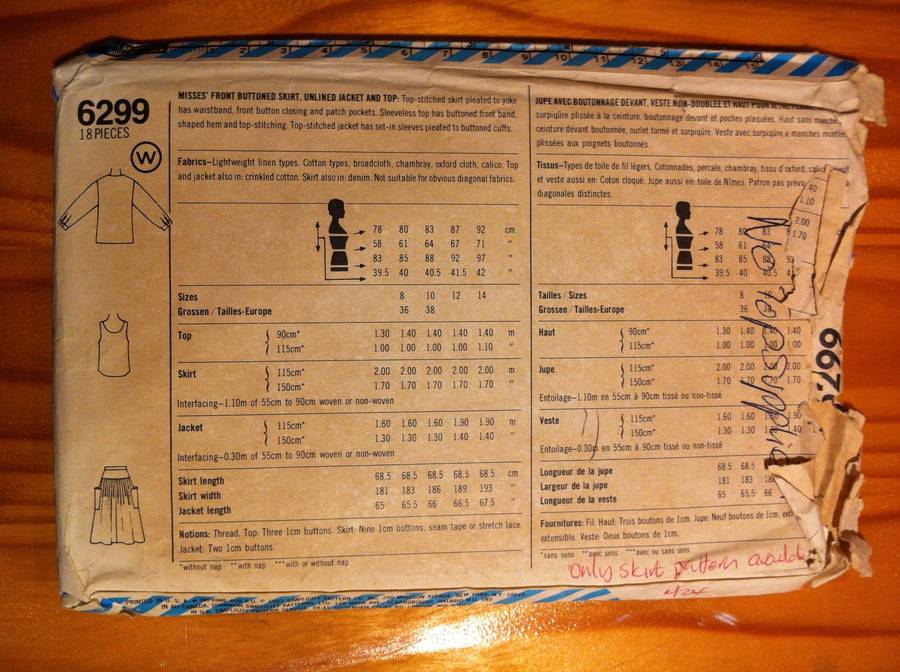 6299
18 PIECES
W
MISSES' FRONT BUTTONED SKIRT, UNLINED JACKET AND TOP: Top-stitched skirt pleated to yoke
has waistband, front button closing and patch pockets. Sleeveless top has buttoned front band,
shaped hem and top-stitching. Top-stitched jacket has set-in sleeves pleated to buttoned cuffs.
Fabrics–Lightweight linen types. Cotton types, broadcloth, chambray, oxford cloth, calico. Top
and jacket also in: crinkled cotton. Skirt also in: denim. Not suitable for obvious diagonal fabrics.
78 80 83 87 92 cm
58 61 64 67 71 "
83 85 88 92 97 "
39.5 40 40.5 41.5 42 "
Sizes 8 10 12 14
Grossen / Tailles-Europe 36 38
Top 90cm* 1.30 1.40 1.40 1.40 1.40 m
115cm* 1.00 1.00 1.00 1.00 1.10 "
Skirt 115cm* 2.00 2.00 2.00 2.00 2.00 m
150cm* 1.70 1.70 1.70 1.70 1.70 "
Interfacing–1.10m of 55cm to 90cm woven or non-woven
Jacket 115cm* 1.60 1.60 1.60 1.90 1.90 m
150cm* 1.30 1.30 1.30 1.40 1.40 "
Interfacing–0.30m of 55cm to 90cm woven or non-woven
Skirt length 68.5 68.5 68.5 68.5 68.5 cm
Skirt width 181 183 186 189 193 "
Jacket length 65 65.5 66 66.5 67.5 "
Notions: Thread. Top: Three 1cm buttons. Skirt: Nine 1cm buttons, seam tape or stretch lace.
Jacket: Two 1cm buttons.
*without nap **with nap ***with or without nap
JUPE AVEC BOUTONNAGE DEVANT, VESTE NON-DOUBLEE ET HAUT POUR
surpiqûre plissée à la ceinture, boutonnage devant et poches plaquées. Haut sans manche,
ceinture devant boutonnée, ourlet formé et surpiqûre. Veste avec surpiqûre a manches montée
plissées aux poignets boutonnés.
Tissus–Types de toile de fil légers. Cotonnades, percale, chambray, tissu d'oxford,
et veste aussi en: Coton cloqué. Jupe aussi en: toile de Nîmes. Patron pas prévu
diagonales distinctes.
78 80 83
58 61
83 85 88
39.5 40 40.5
Tailles / Sizes 8
Grossen / Tailles-Europe 36 38
Haut 90cm* 1.30 1.40 1.40 1.40 1.40
115cm* 1.00 1.00 1.00 1.00
Jupe 115cm* 2.00 2.00 2.00 2.00
150cm* 1.70 1.70 1.70 1.70
Entoilage–1.10m de 55cm à 90cm tissé ou non-tissé
Veste 115cm* 1.60 1.60 1.90
150cm* 1.30 1.30 1.40
Entoilage–0.30m en 55cm à 90cm tissé ou non-tissé
Longueur de la jupe 68.5 68.5
Largeur de la jupe 181 183
Longueur de la veste 65 65.5 66
Fournitures: Fil. Haut: Trois boutons de 1cm. Jupe: Neuf boutons de 1cm,
extensible. Veste: Deux boutons de 1cm.
*sans sens **avec sens ***avec ou sans sens
40
1.10
2.00
1.70
only skirt pattern
PRINTED IN U. S. A.